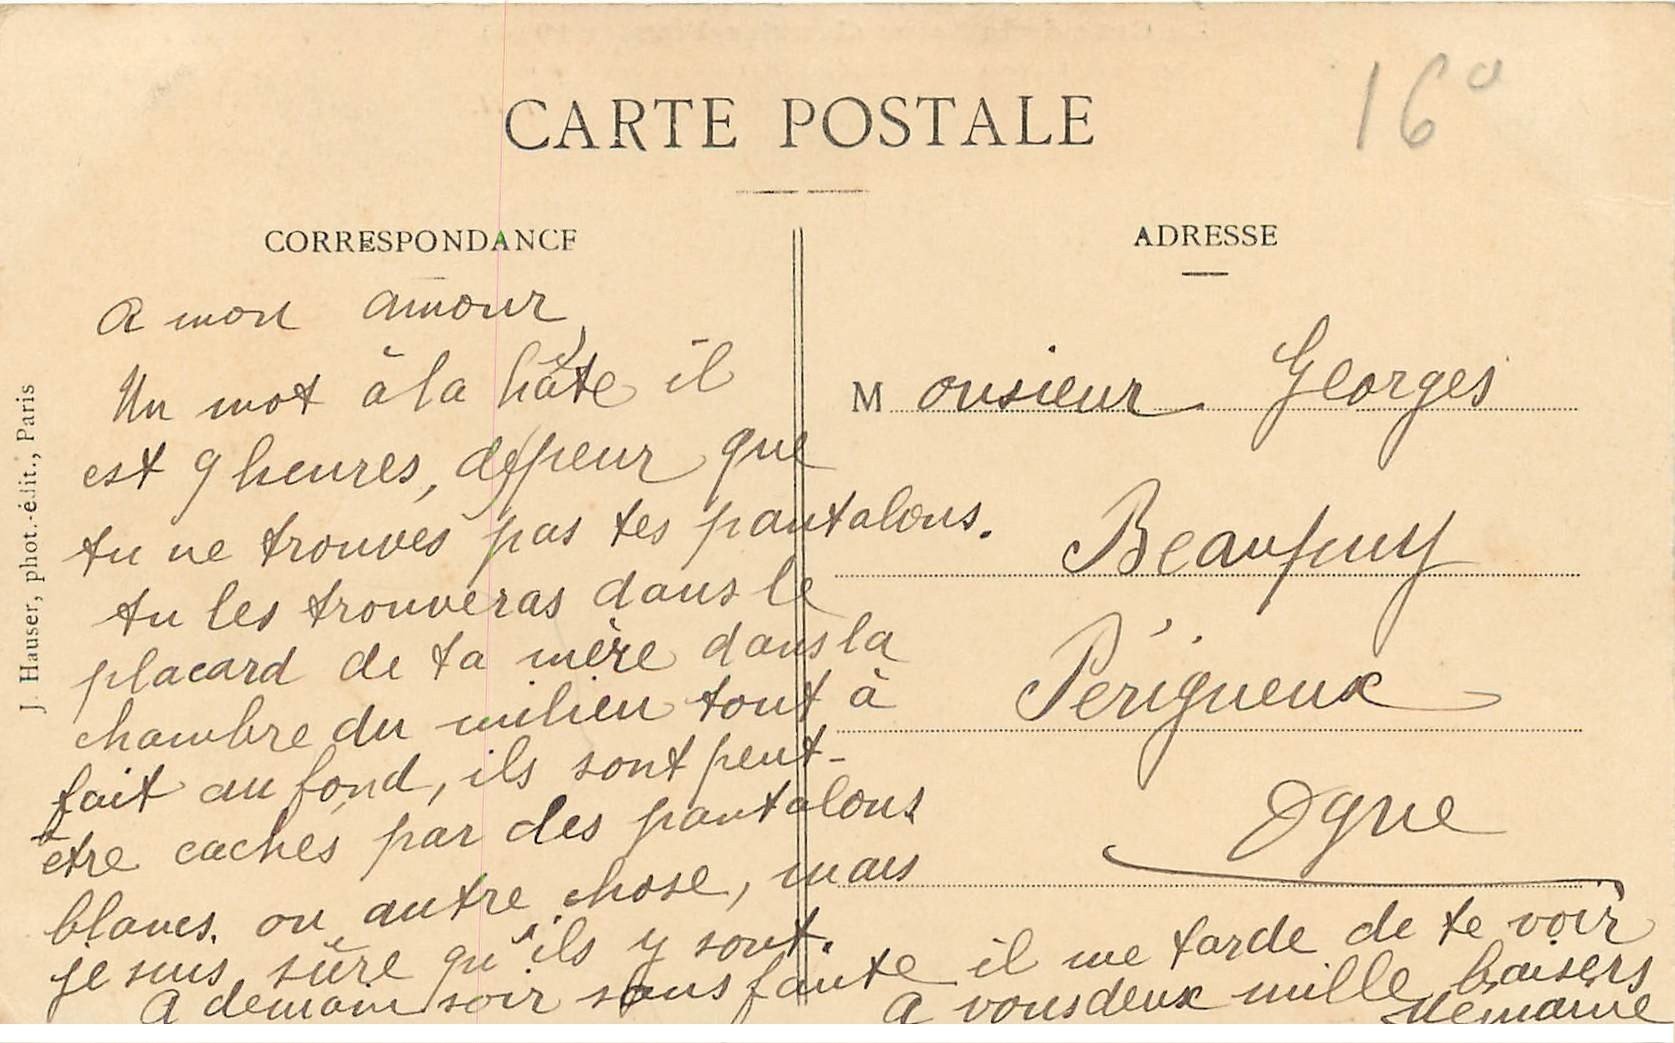 16°
CARTE POSTALE
CORRESPONDANCE
A mon amour
Un mot à la hâte il
est 9 heures, de peur que
tu ne trouves pas tes pantalons.
tu les trouveras dans le
placard de ta mère dans la
chambre du milieu tout à
fait au fond, ils sont peut-
être cachés par des pantalons
blancs. ou autre chose, mais
je suis sûre qu'ils y sont.
A demain soir sans faute il me tarde de te voir
A vous deux mille baisers
ADRESSE
Monsieur Georges
Beaupuy
Périgueux
Dgne
J. Hauser, phot.-édit., Paris